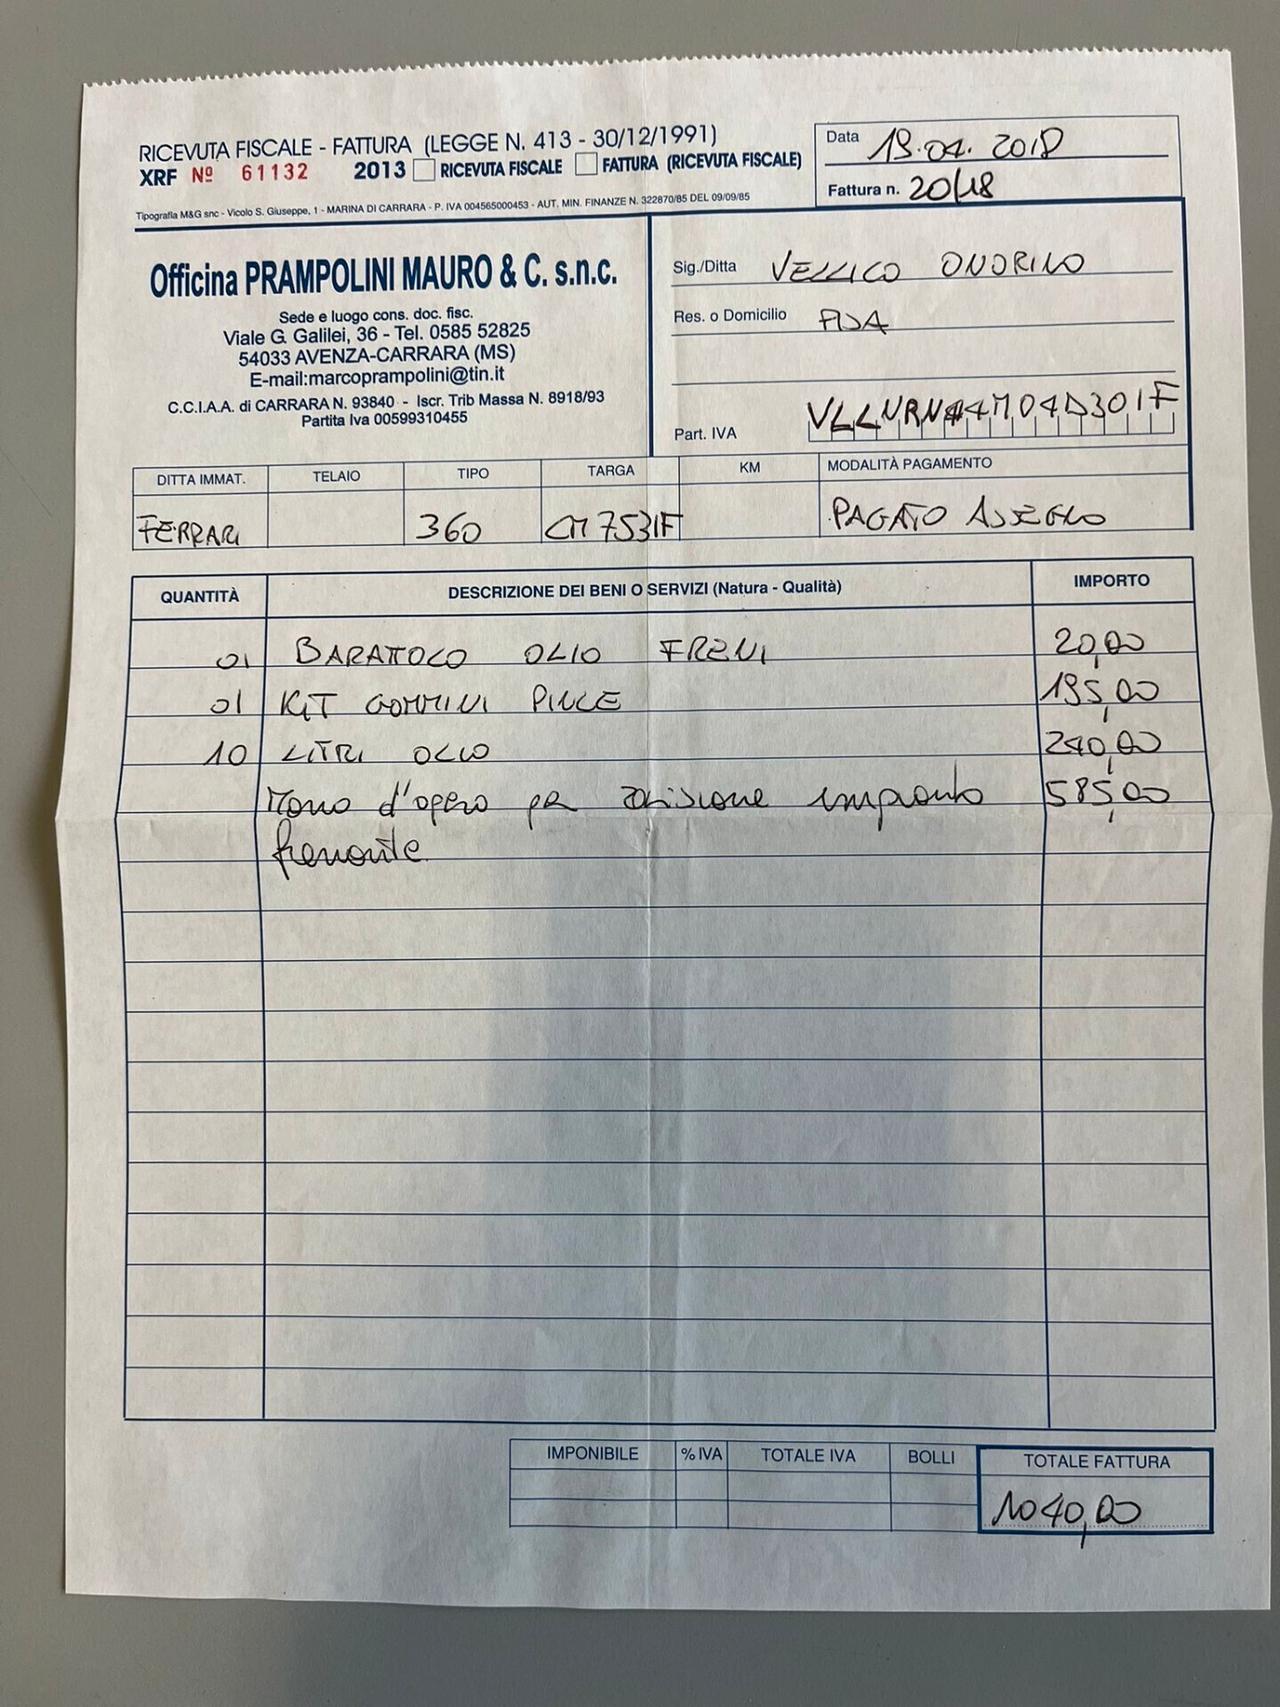 RICEVUTA FISCALE - FATTURA (LEGGE N. 413 - 30/12/1991)
XRF Nº 61132 2013 RICEVUTA FISCALE FATTURA (RICEVUTA FISCALE)
Tipografia M&G snc - Vicolo S. Giuseppe, 1 - MARINA DI CARRARA - P. IVA 004565000453 - AUT. MIN. FINANZE N. 322870/85 DEL 09/09/85
Data 19.04.2018
Fattura n. 20/18
Officina PRAMPOLINI MAURO & C. s.n.c.
Sede e luogo cons. doc. fisc.
Viale G. Galilei, 36 - Tel. 0585 52825
54033 AVENZA-CARRARA (MS)
E-mail:marcoprampolini@tin.it
C.C.I.A.A. di CARRARA N. 93840 - Iscr. Trib Massa N. 8918/93
Partita Iva 00599310455
Sig./Ditta VELLICO ONORINO
Res. o Domicilio PISA
Part. IVA
DITTA IMMAT. TELAIO TIPO TARGA KM MODALITÀ PAGAMENTO
FERRARI 360 CM753IF PAGATO ASSEGNO
QUANTITÀ DESCRIZIONE DEI BENI O SERVIZI (Natura - Qualità) IMPORTO
01 BARATTOLO OLIO FRENI 20,00
01 KIT GOMMINI PINZE 195,00
10 LITRI OLIO 240,00
Mano d'opera per revisione impianto 585,00
frenante
IMPONIBILE % IVA TOTALE IVA BOLLI TOTALE FATTURA
1040,00